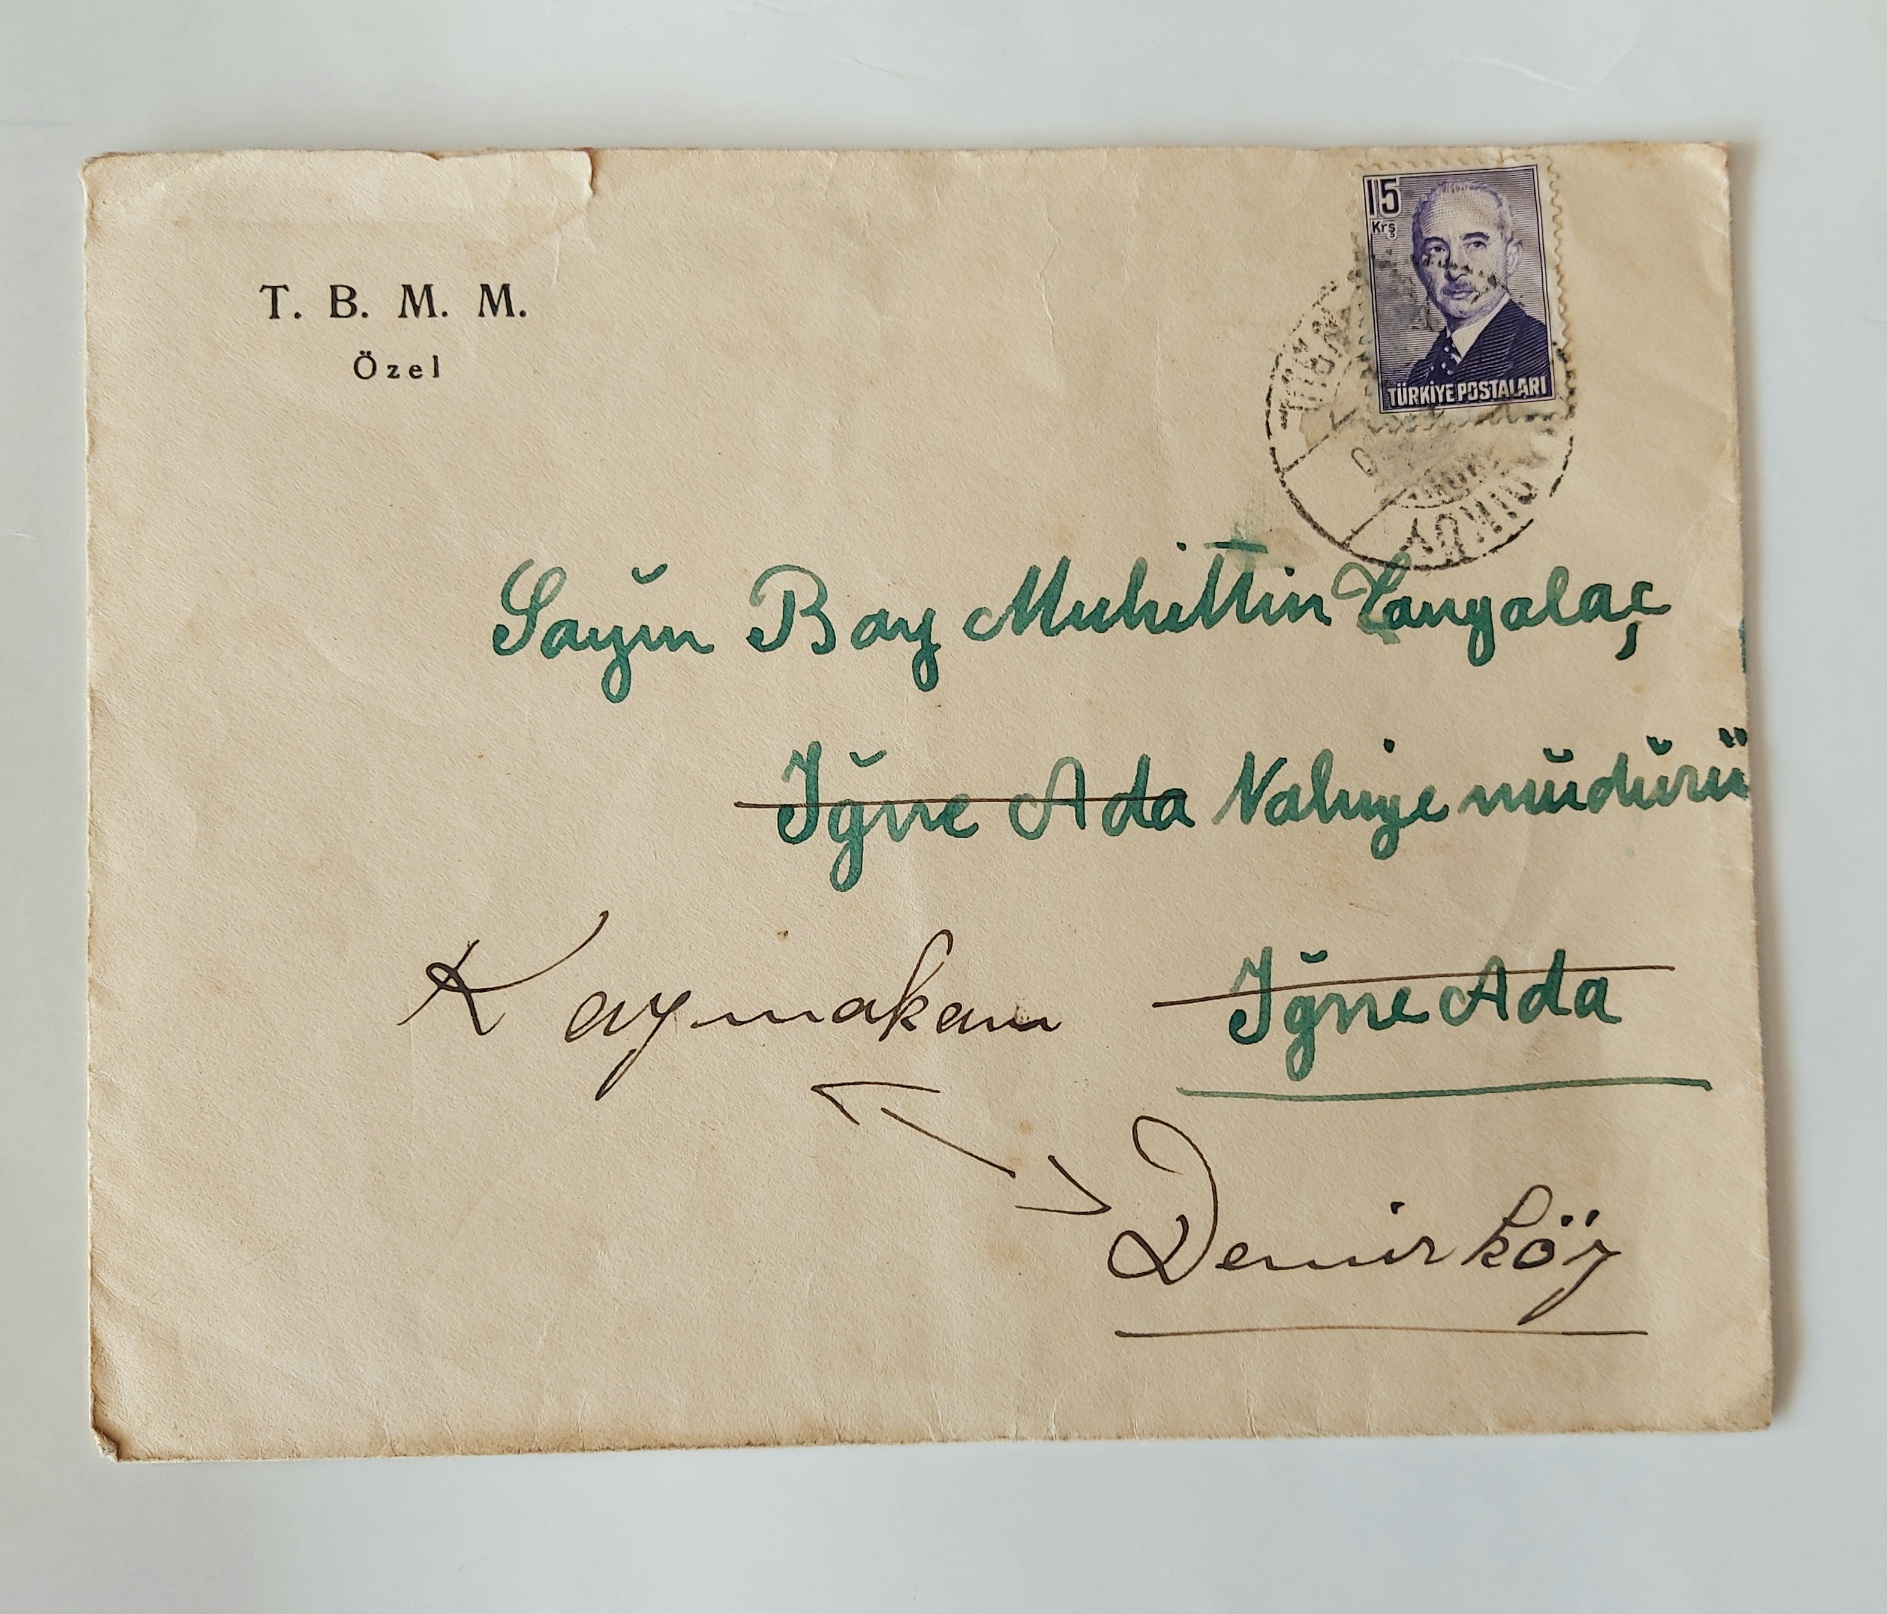 T. B. M. M.
Özel
15
Krş
TÜRKİYE POSTALARI
Sayın Bay Muhittin
İğne Ada Nahiye müdürü
Kaymakam İğne Ada
Demirköy